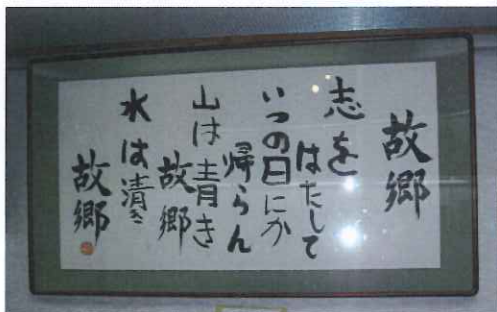 故郷
志を
はたして
いつの日にか
帰らん
山は青き
故郷
水は清き
故郷